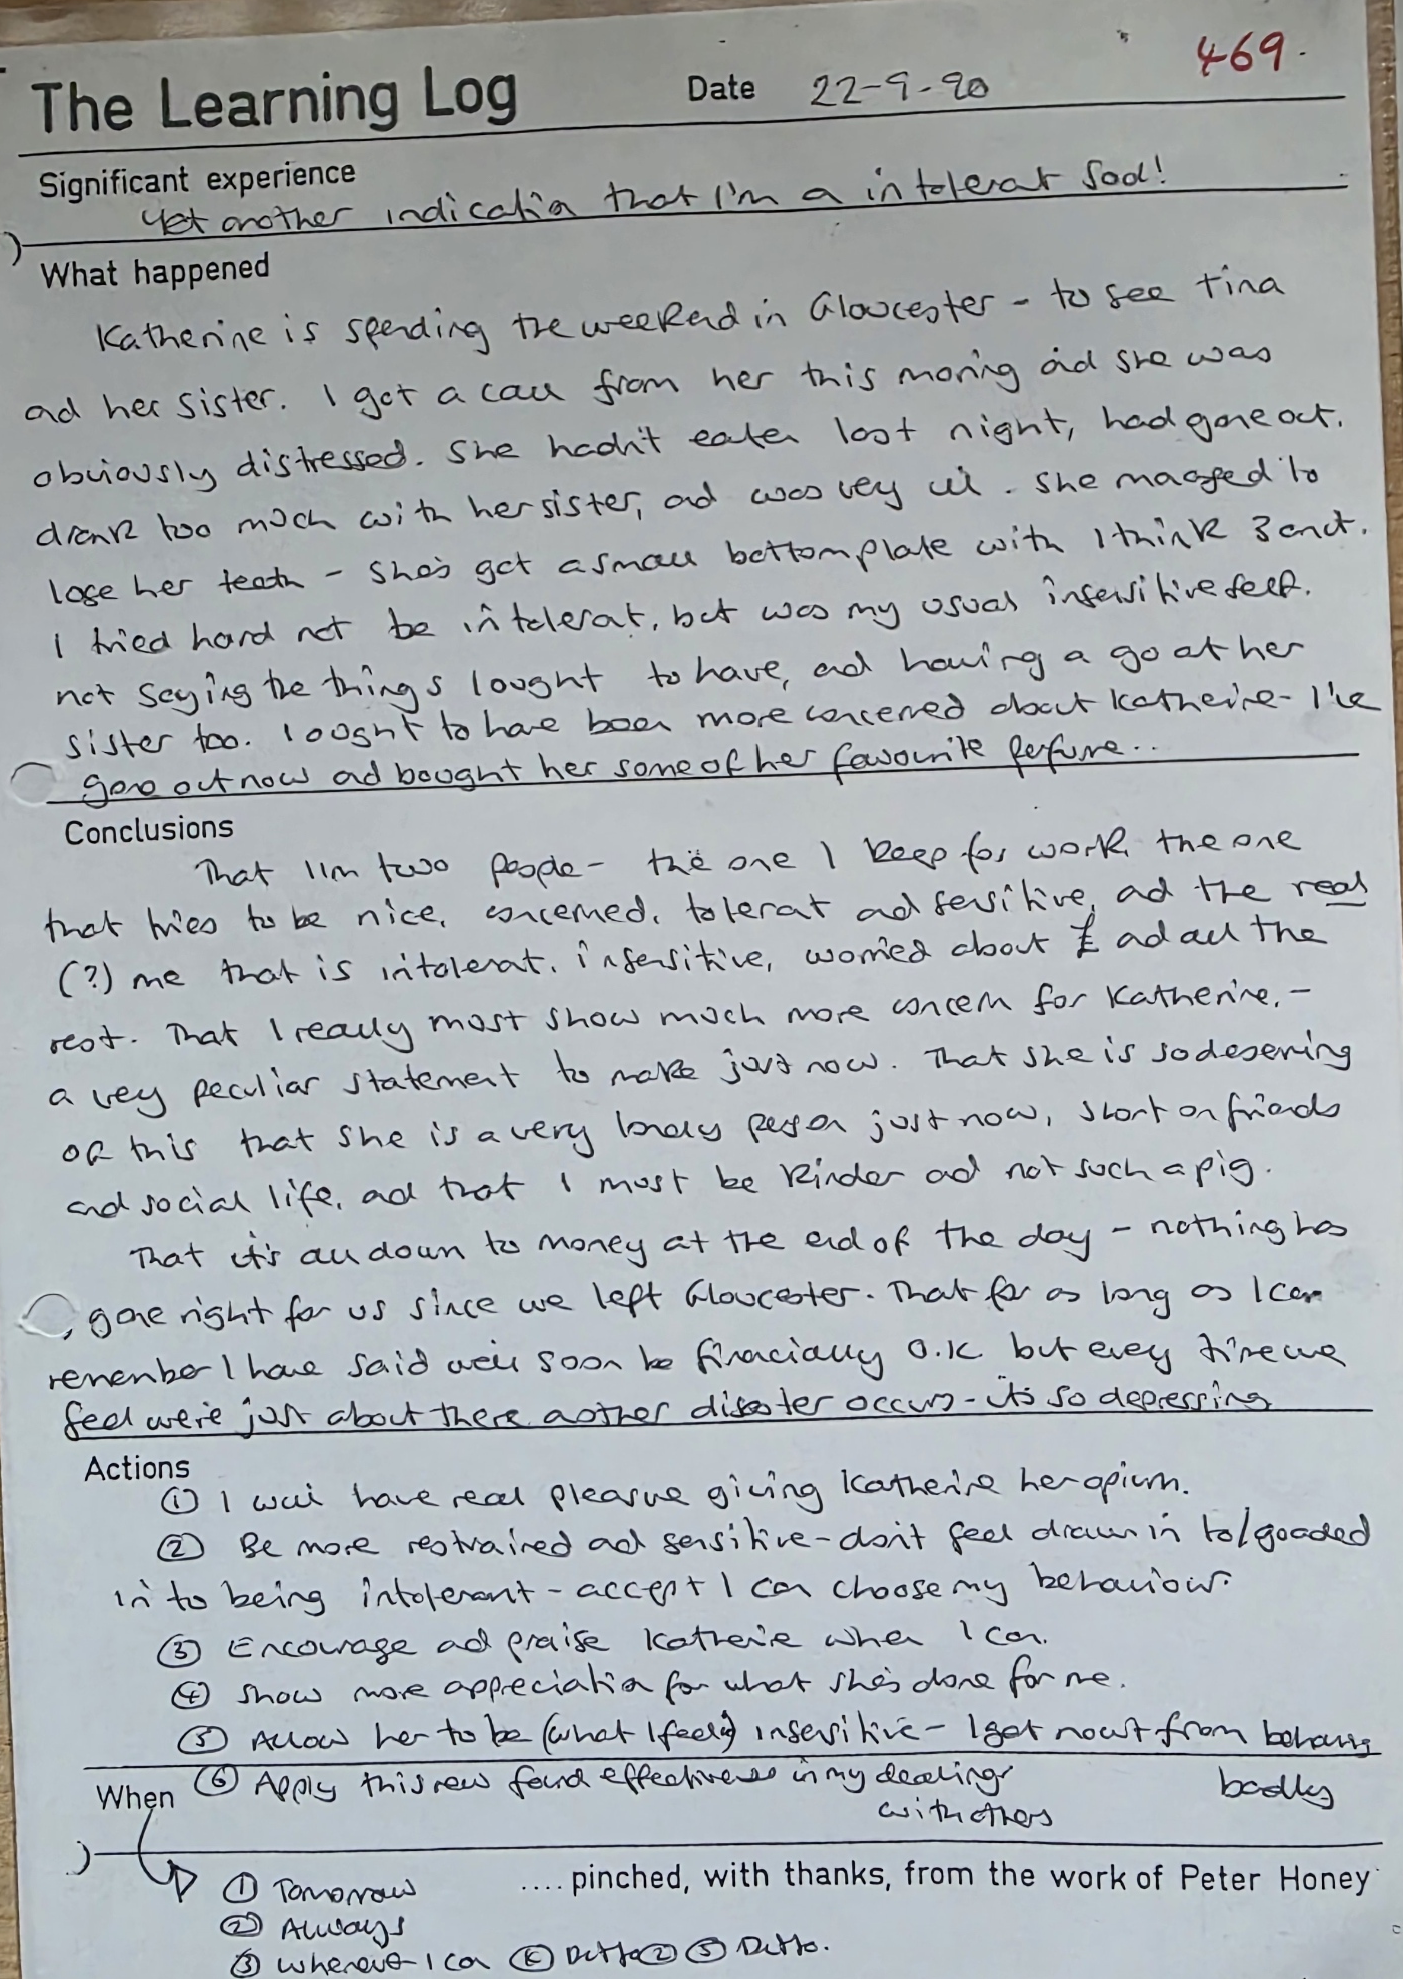 469.
The Learning Log Date 22-9-90
Significant experience
Yet another indication that I'm a intolerat sod!
What happened
Katherine is spending the weekend in Gloucester - to see Tina
ad her sister. I got a call from her this morning and she was
obviously distressed. She hadn't eaten last night, had gone out,
drank too much with her sister, ad was very ill. She managed to
lose her teeth - she's got a small bottom plate with I think 3 on it.
I tried hard not be intolerat, but was my usual insensitive self.
not saying the things I ought to have, ad having a go at her
sister too. I ought to have been more concerned about Katherine - I've
gone out now ad bought her some of her favourite perfume..
Conclusions
That I'm two people - the one I keep for work, the one
that tries to be nice, concerned, tolerat ad sensitive, ad the real
(?) me that is intolerat, insensitive, worried about £ ad all the
rest. That I really must show much more concern for Katherine, -
a very peculiar statement to make just now. That she is so deserving
of this that she is a very lonely person just now, short on friends
and social life, ad that I must be kinder ad not such a pig.
That it's all down to money at the end of the day - nothing has
gone right for us since we left Gloucester. That for as long as I can
remember I have said we'll soon be financially O.K but every time we
feel we're just about there another disaster occurs - it's so depressing
Actions
① I will have real pleasure giving Katherine her opium.
② Be more restrained ad sensitive - don't feel drawn in to/goaded
in to being intolerant - accept I can choose my behaviour.
③ Encourage ad praise Katherine when I can.
④ Show more appreciation for what she's done for me.
⑤ Allow her to be (what I feel is) insensitive - I get nowt from behaving
badly
When ⑥ Apply this new found effectiveness in my dealings
with others
① Tomorrow .... pinched, with thanks, from the work of Peter Honey
② Always
③ Whenever I can ④ Ditto ② ⑤ Ditto.